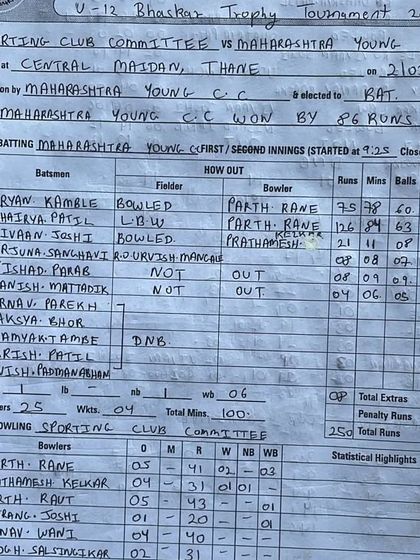 U-12 Bhaskar Trophy Tournament 2
RTING CLUB COMMITTEE vs MAHARASHTRA YOUNG
at CENTRAL MAIDAN, THANE on 21/0
on by MAHARASHTRA YOUNG C.C & elected to BAT.
MAHARASHTRA YOUNG C.C WON BY 86 RUNS
BATTING MAHARASHTRA YOUNG CC FIRST / SECOND INNINGS (STARTED at 9:25 Close
Batsmen HOW OUT Runs Mins Balls
Fielder Bowler
RYAN. KAMBLE BOWLED PARTH. RANE 75 78 60
HAIRYA. PATIL L.B.W PARTH. RANE 126 84 63
IVAAN. JOSHI BOWLED PRATHAMESH. KELKAR 21 11 08
RJUNA. SANGHAVI R.O. URVISH. MANGALE 08 08 07
ISHAD. PARAB NOT OUT 08 09 09
ANISH. MATTADIK NOT OUT 04 06 05
RNAV. PAREKH
AKSYA. BHOR
AMYAK. TAMBE DNB.
RISH. PATIL
VISH. PADMANABHAN
1 lb — nb 1 wb 06 08 Total Extras
ers 25 Wkts. 04 Total Mins. 100. Penalty Runs
250 Total Runs
OWLING SPORTING CLUB COMMITTEE
Bowlers O M R W NB WB Statistical Highlights
RTH. RANE 05 – 41 02 – 03
THAMESH. KELKAR 04 – 31 01 01 –
RTH. RAUT 05 – 43 – – 01
RANG. JOSHI 01 – 20 – – 01
NAV. WANI 04 – 40 – – –
OGH. SALSINGIKAR 02 – 31 –